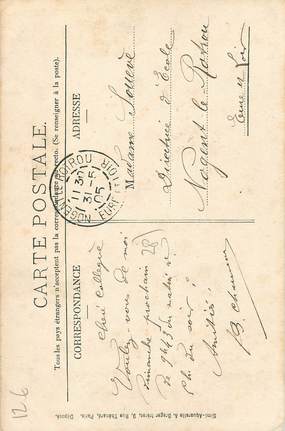 CARTE POSTALE.
Tous les pays étrangers n'acceptent pas la correspondance au recto. (Se renseigner à la poste).
CORRESPONDANCE
ADRESSE
Chère Collègue
Voulez-vous de moi
Dimanche prochain 28
De 9h45 du matin à
du soir?
Amitiés
Madame
Directrice d'École
Nogent le Rotrou
Eure et Loir
NOGENT-LE-ROTROU
11 30
31 - 5
05
EURE-ET-LOIR
Simi-Aquarelle A. Breger frères, 9, Rue Thénard, Paris. Déposé.
126